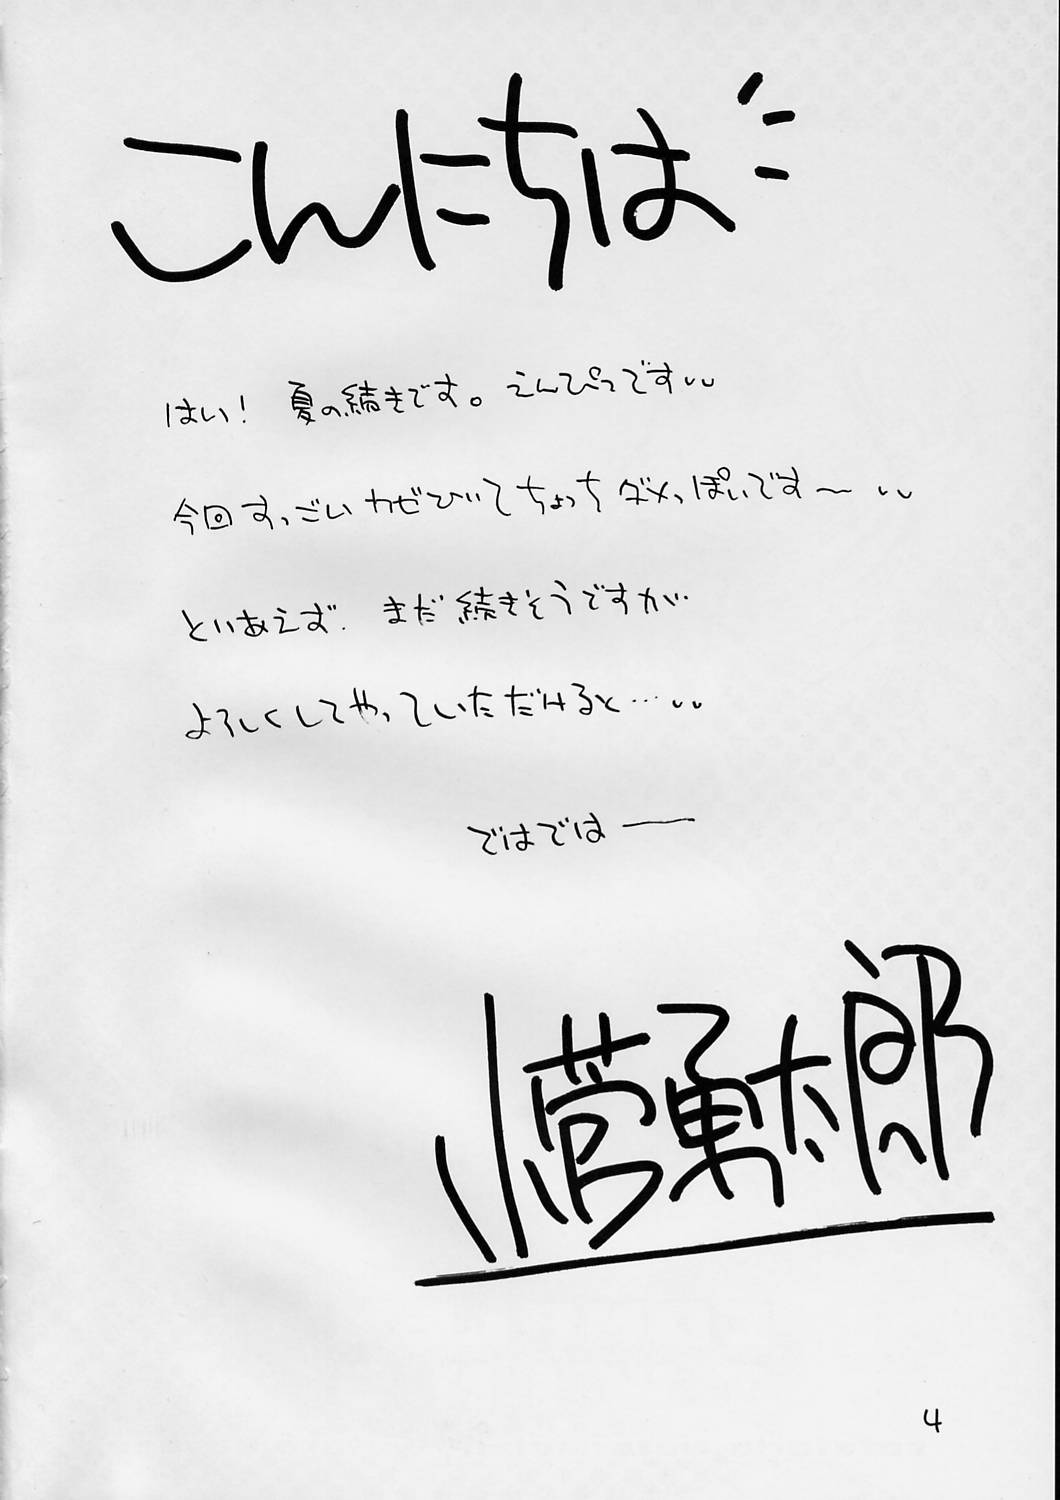 こんにちは
はい! 夏の続きです。えんぴつです
今回すっごいカゼひいてちょっちダメっぽいです〜
といあえず. まだ続きそうですが.
よろしくしてやっていただけると…
ではでは―
小菅勇太郎
4